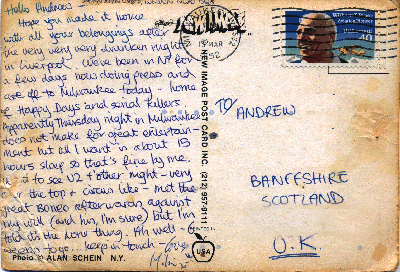 Hello Andrew -
Hope you made it home
with all your belongings after
the very very very drunken night
in Liverpool. We've been in NY for
a few days now doing press and
are off to Milwaukee today - home
of Happy Days and serial killers.
Apparently Thursday night in Milwaukee
does not make for great entertain-
ment but all I want is about 15
hours sleep so that's fine by me.
to see U2 t'other night - very
the top & circus like - met the
great BONEO afterwards against
my will (and his, I'm sure) but I'm
told it's the done thing. Ah well -
keep in touch - love
Photo © ALAN SCHEIN N.Y.
NEW IMAGE POST CARD INC. (212) 957-9111
PRINTED IN
USA
MAR
1992
Aviation Pioneer
40
TO ANDREW
BANFFSHIRE
SCOTLAND
U.K.